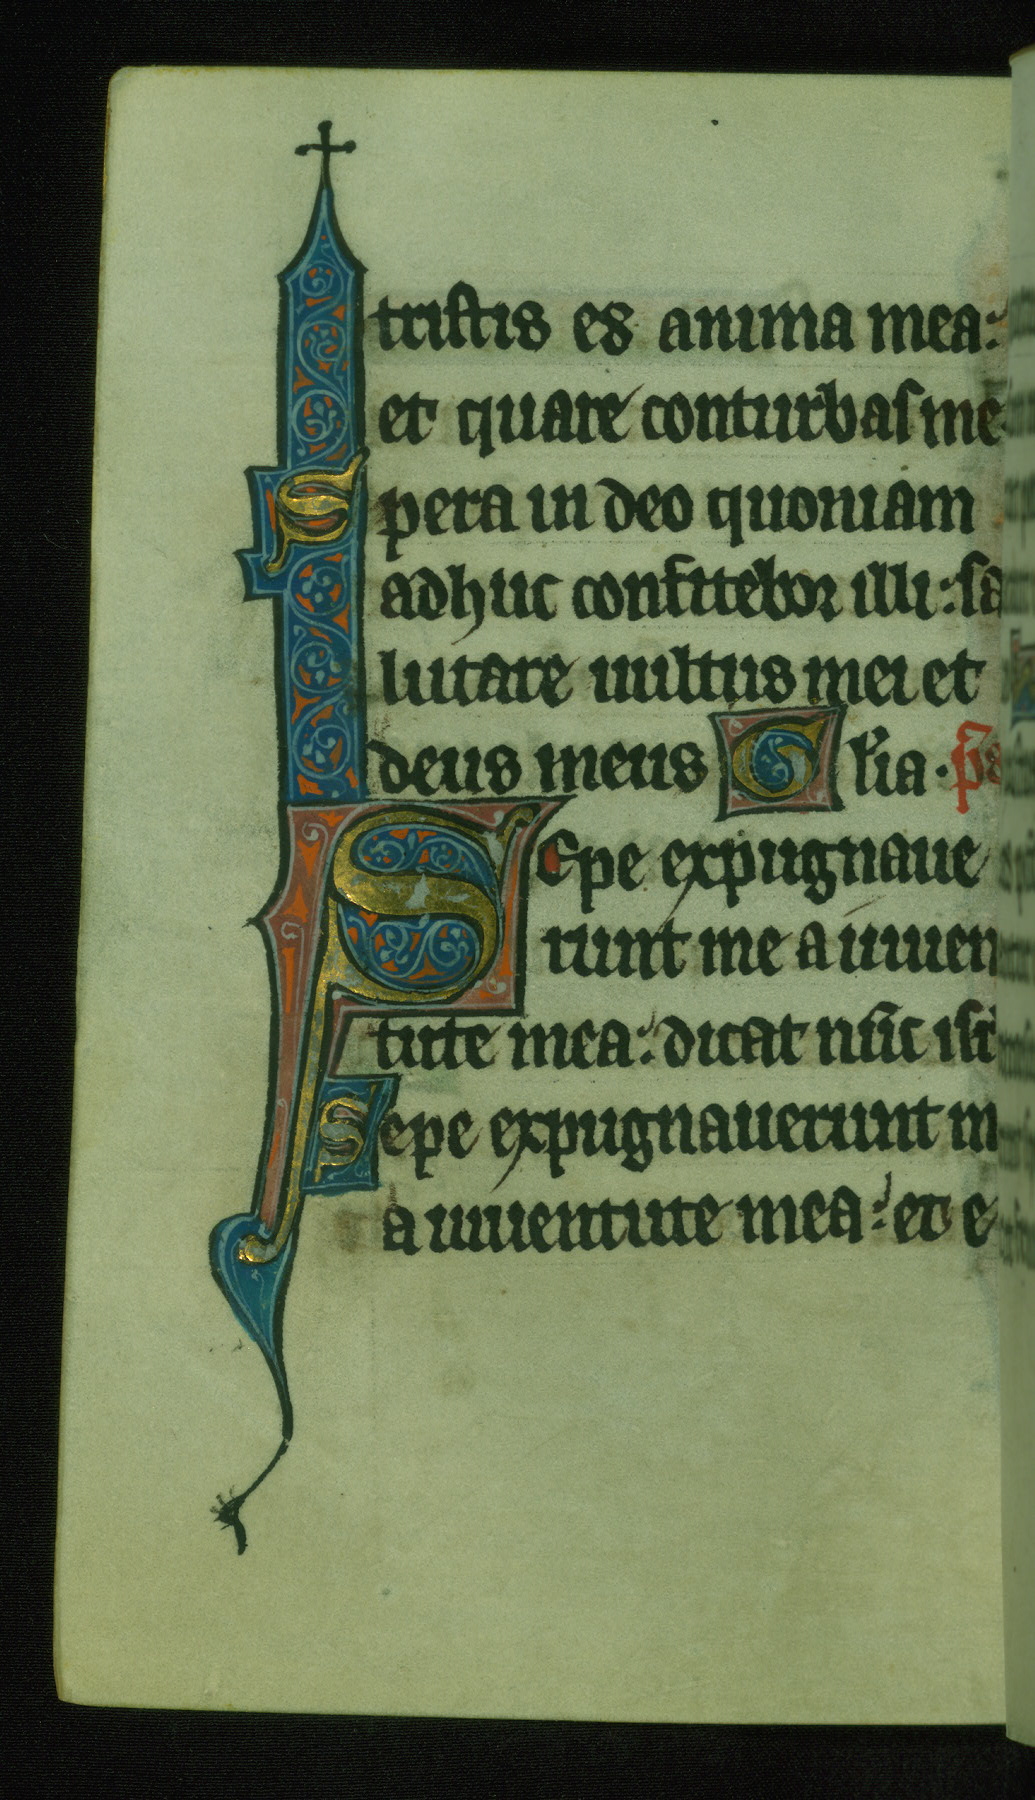 tristis es anima mea:
et quare conturbas me
Spera in deo quoniam
adhuc confitebor illi: sa
lutare uultus mei et
deus meus Glia. ps
Sepe expugnaue
runt me a iuuen
tute mea: dicat nūc isrl
Sepe expugnauerunt m
a iuuentute mea: et e